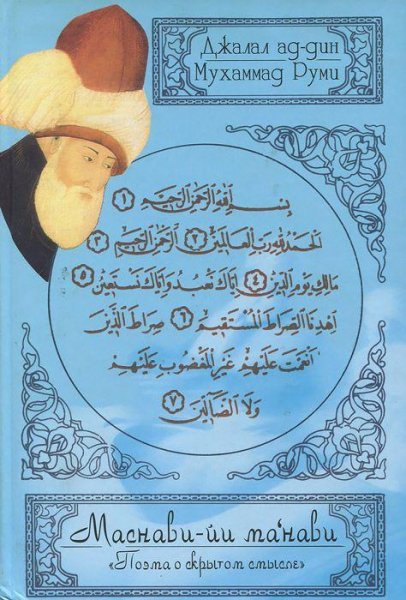 Джалал ад-дин
Мухаммад Руми
بِسْمِ اللَّهِ الرَّحْمَٰنِ الرَّحِيمِ ١
الْحَمْدُ لِلَّهِ رَبِّ الْعَالَمِينَ ٢ الرَّحْمَٰنِ الرَّحِيمِ ٣
مَالِكِ يَوْمِ الدِّينِ ٤ إِيَّاكَ نَعْبُدُ وَإِيَّاكَ نَسْتَعِينُ ٥
اهْدِنَا الصِّرَاطَ الْمُسْتَقِيمَ ٦ صِرَاطَ الَّذِينَ
أَنْعَمْتَ عَلَيْهِمْ غَيْرِ الْمَغْضُوبِ عَلَيْهِمْ
وَلَا الضَّالِّينَ ٧
Маснави-йи ма‘нави
«Поэма о скрытом смысле»